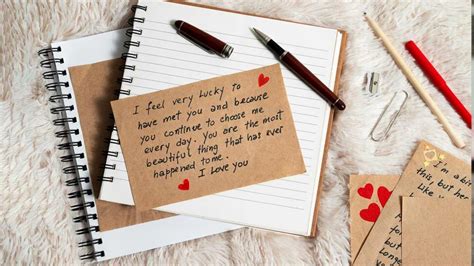 I feel very lucky to
have met you and because
you continue to choose me
every day. You are the most
beautiful thing that has ever
happened to me.
I love you
I'm a bi
this, but her
Like "